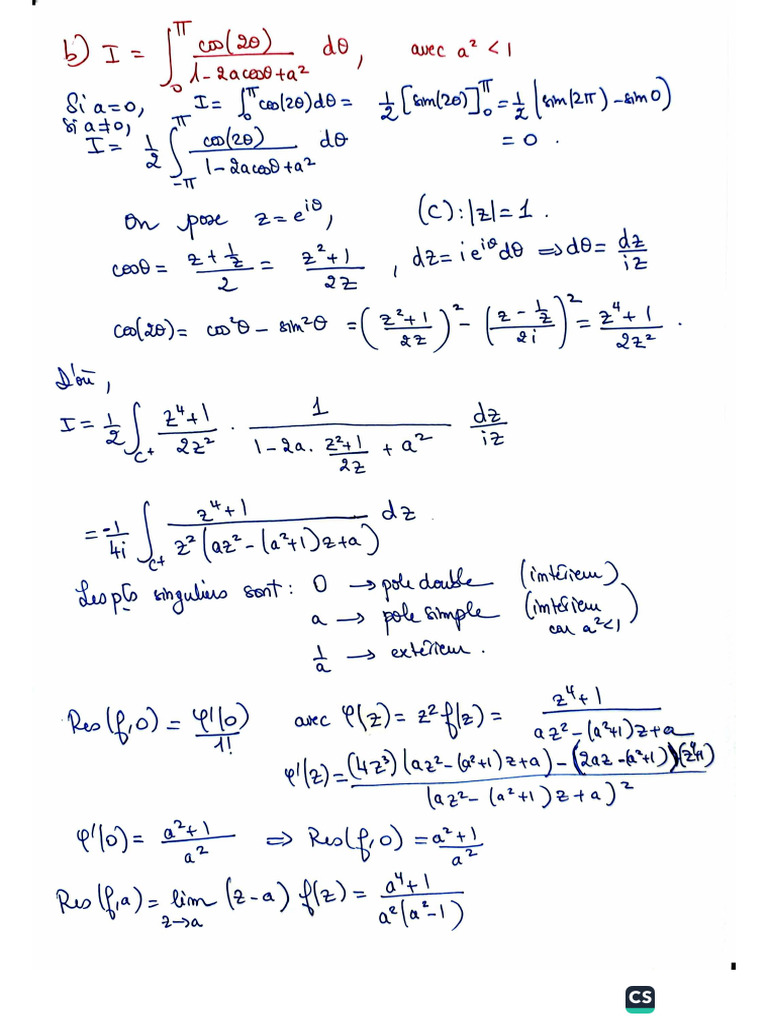 b) I = ∫₀^π cos(2θ)/(1-2a cosθ+a²) dθ, avec a² < 1
Si a=0, I = ∫₀^π cos(2θ)dθ = 1/2 [sin(2θ)]₀^π = 1/2 (sin(2π) - sin 0)
= 0.
Si a≠0,
I = 1/2 ∫_{-π}^{π} cos(2θ)/(1-2a cosθ+a²) dθ
On pose z = e^{iθ}, (C): |z| = 1.
cosθ = (z + 1/z)/2 = (z²+1)/2z, dz = i e^{iθ} dθ ⇒ dθ = dz/iz
cos(2θ) = cos²θ - sin²θ = ((z²+1)/2z)² - ((z - 1/z)/2i)² = (z⁴+1)/2z².
D'où,
I = 1/2 ∫_{C+} (z⁴+1)/2z² . 1/(1-2a. (z²+1)/2z + a²) dz/iz
= -1/4i ∫_{C+} (z⁴+1)/(z²(az²-(a²+1)z+a)) dz.
Les pts singuliers sont: 0 → pole double (intérieur)
a → pole simple (intérieur car a²<1)
1/a → extérieur.
Res(f,0) = φ'(0)/1! avec φ(z) = z²f(z) = (z⁴+1)/(az²-(a²+1)z+a)
φ'(z) = ((4z³)(az²-(a²+1)z+a) - (2az-(a²+1))(z⁴+1))/(az²-(a²+1)z+a)²
φ'(0) = (a²+1)/a² ⇒ Res(f,0) = (a²+1)/a²
Res(f,a) = lim_{z→a} (z-a) f(z) = (a⁴+1)/(a²(a²-1))
CS